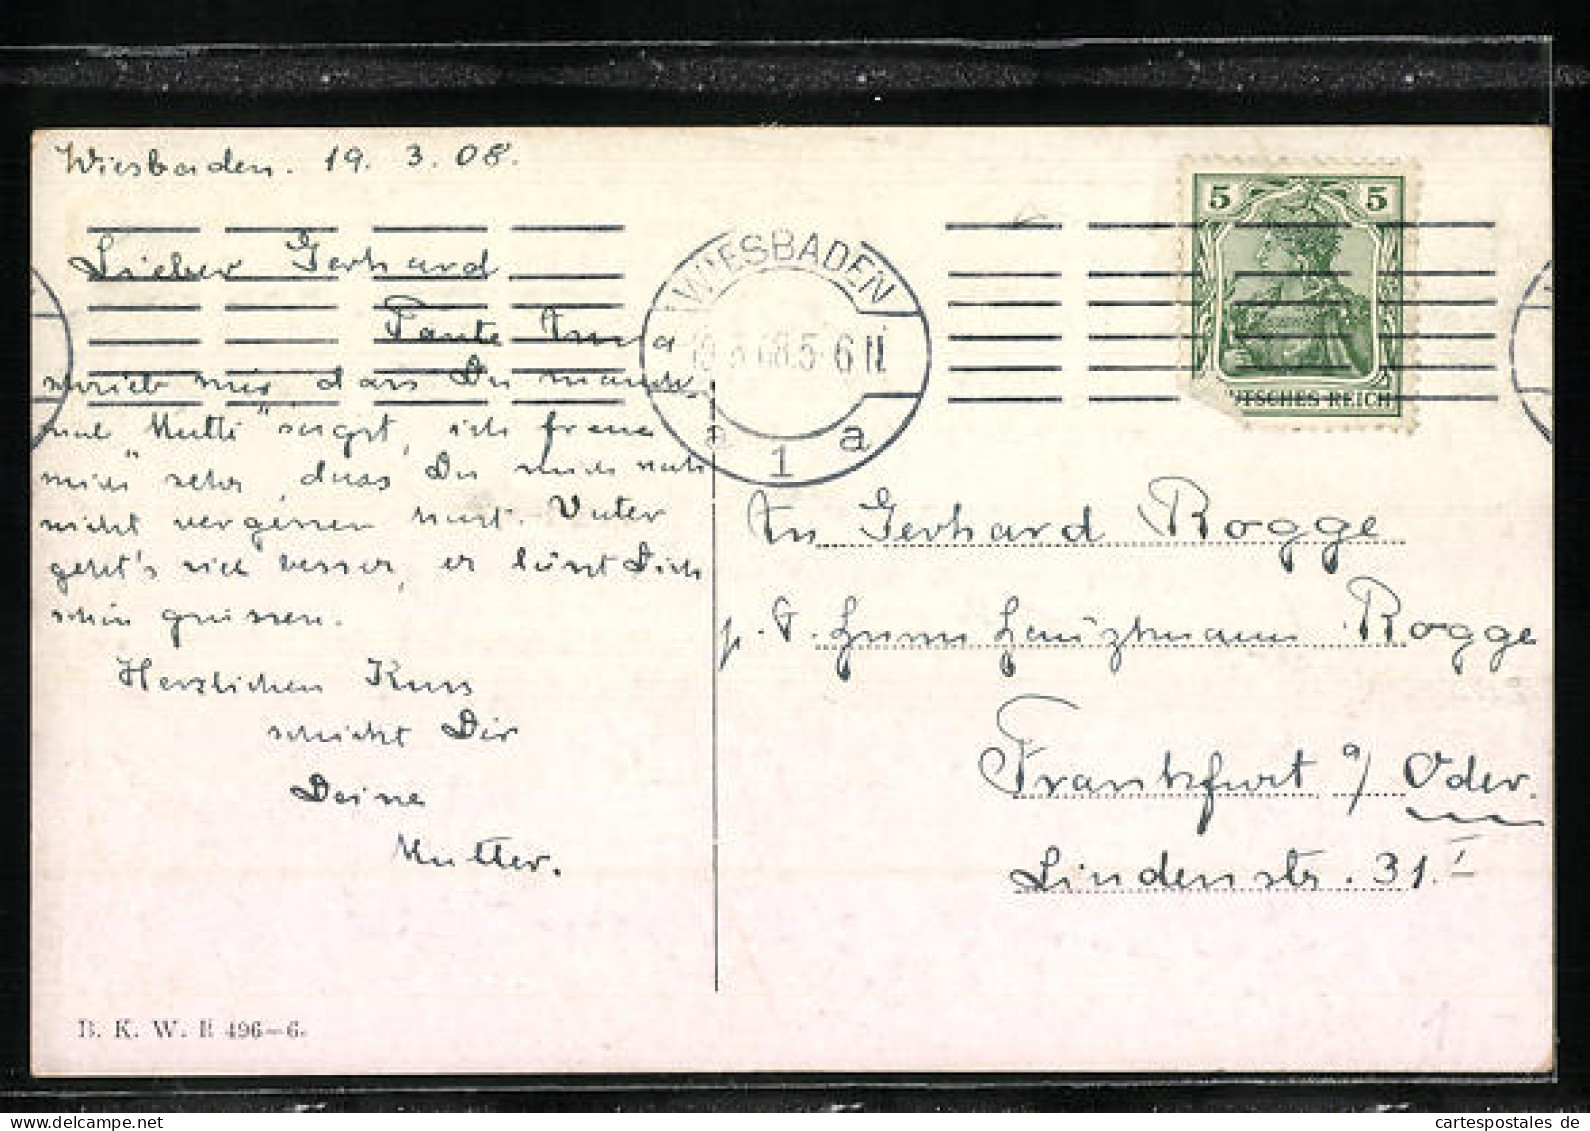 Wiesbaden. 19. 3. 08.
Lieber Gerhard
Tante Anna
schrieb mir, dass Du manch-
mal "Mutti" sagst, ich freue
mich sehr, dass Du mich noch
nicht vergessen hast. Vater
geht's viel besser, er lässt Dich
schön grüssen.
Herzlichen Kuss
schickt Dir
Deine
Mutter.
B. K. W. II 496-6.
WIESBADEN
19.3.08.5-6 N
1 a
5 5
DEUTSCHES REICH
An Gerhard Rogge
p. A. Herrn Hauptmann Rogge
Frankfurt a/ Oder.
Lindenstr. 31. I
www.cartespostales.de
cartespostales de